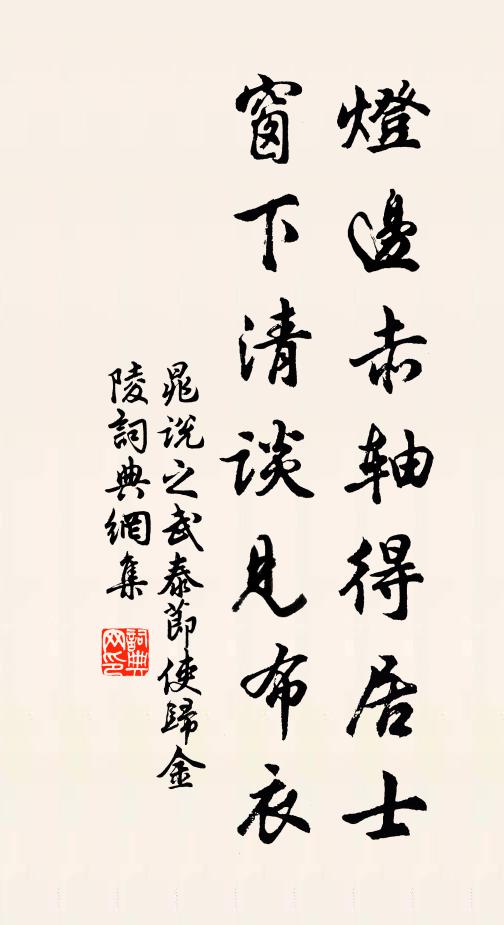 燈邊赤軸得居士
窗下清談見布衣
晁說之武泰節使歸金
陵詞典網集
詞典網印